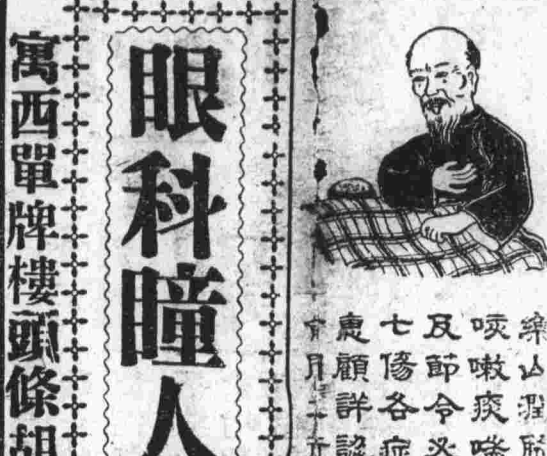 潤肺
咳嗽痰喘
及節令
七傷各症
惠顧詳認
月
眼科瞳人
寓西單牌樓頭條胡